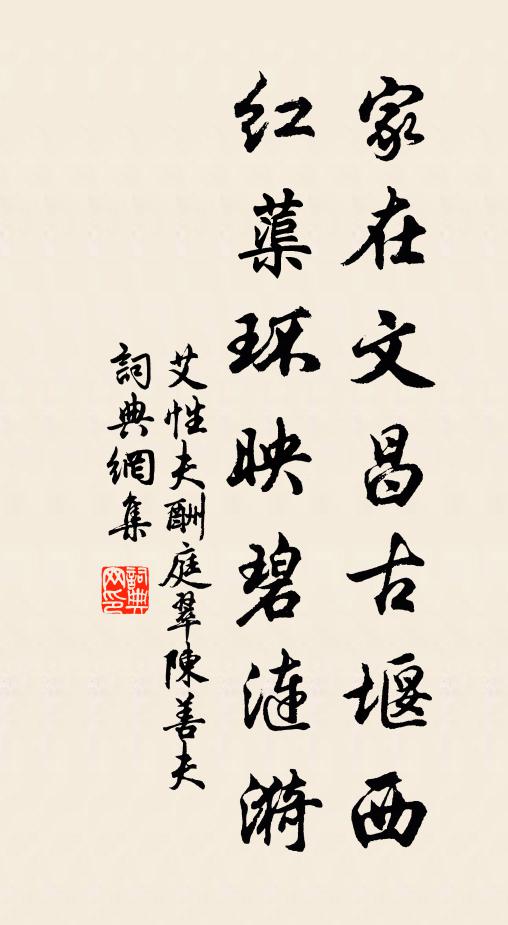 家在文昌古堰西
红蕖环映碧漣漪
艾性夫酬庭翠陳善夫
詞典網集
詞典网印